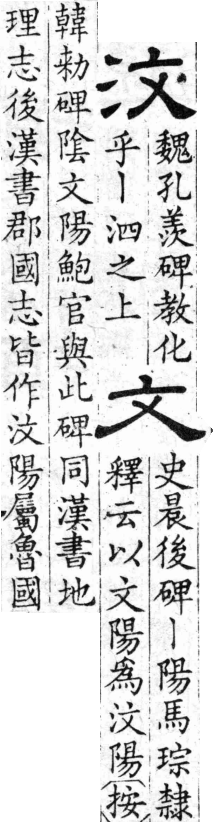 汶
魏孔羨碑教化
乎丨泗之上
文
史晨後碑丨陽馬琮隸
釋云以文陽爲汶陽〔按
韓勑碑陰文陽鮑官與此碑同漢書地
理志後漢書郡國志皆作汶陽屬魯國